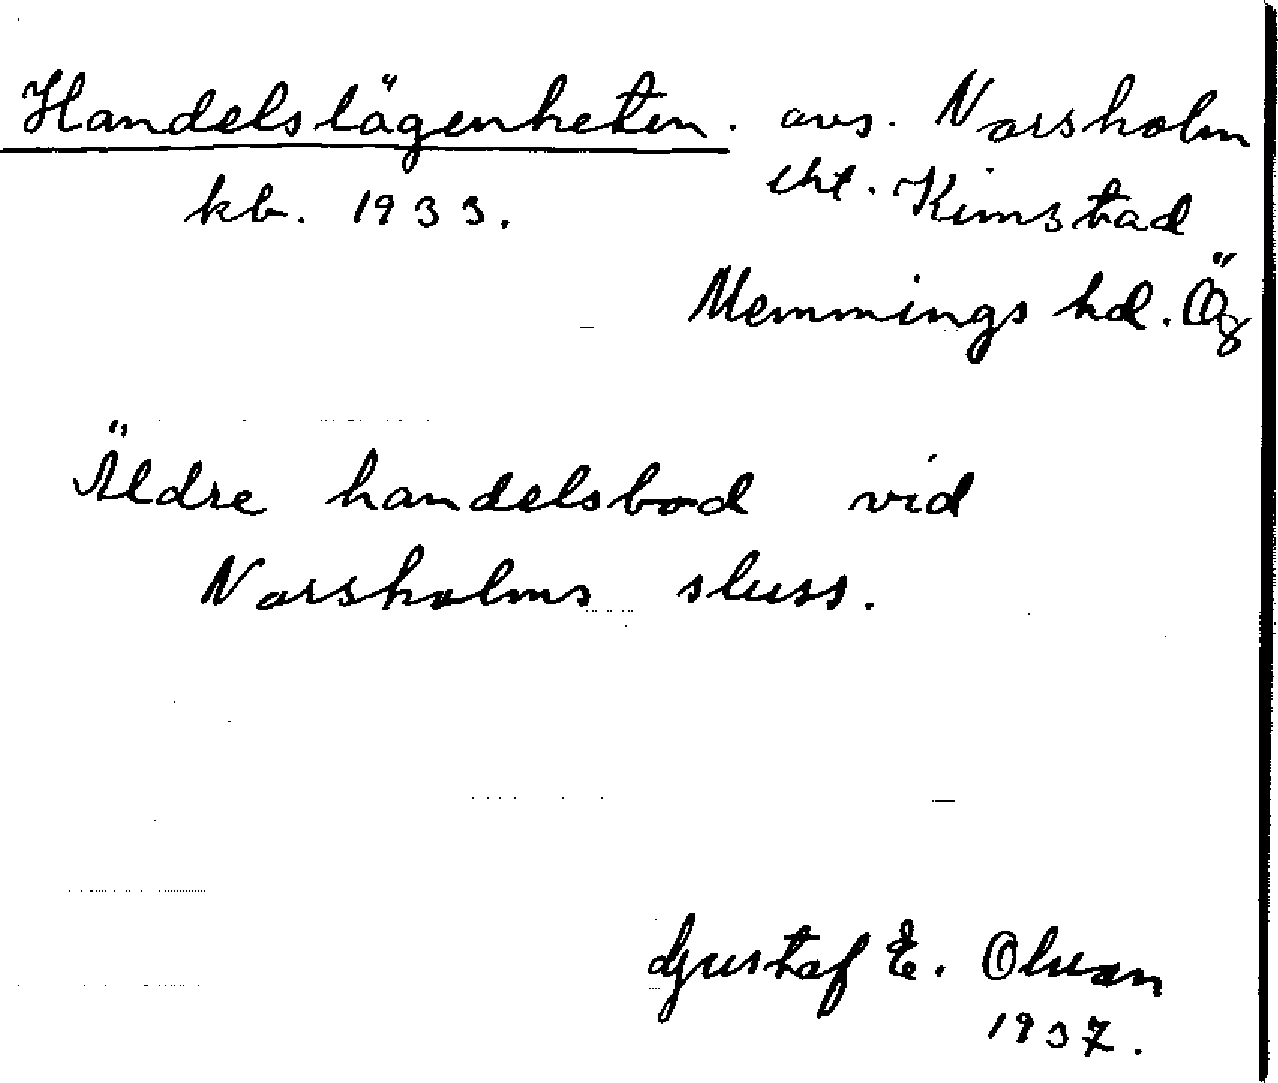 Handelslägenheten. avs. Norsholm
kb. 1933. cht. Kimstad
Memmings hd. Ög
Äldre handelsbod vid
Norsholms sluss.
Gustaf E. Olson
1937.